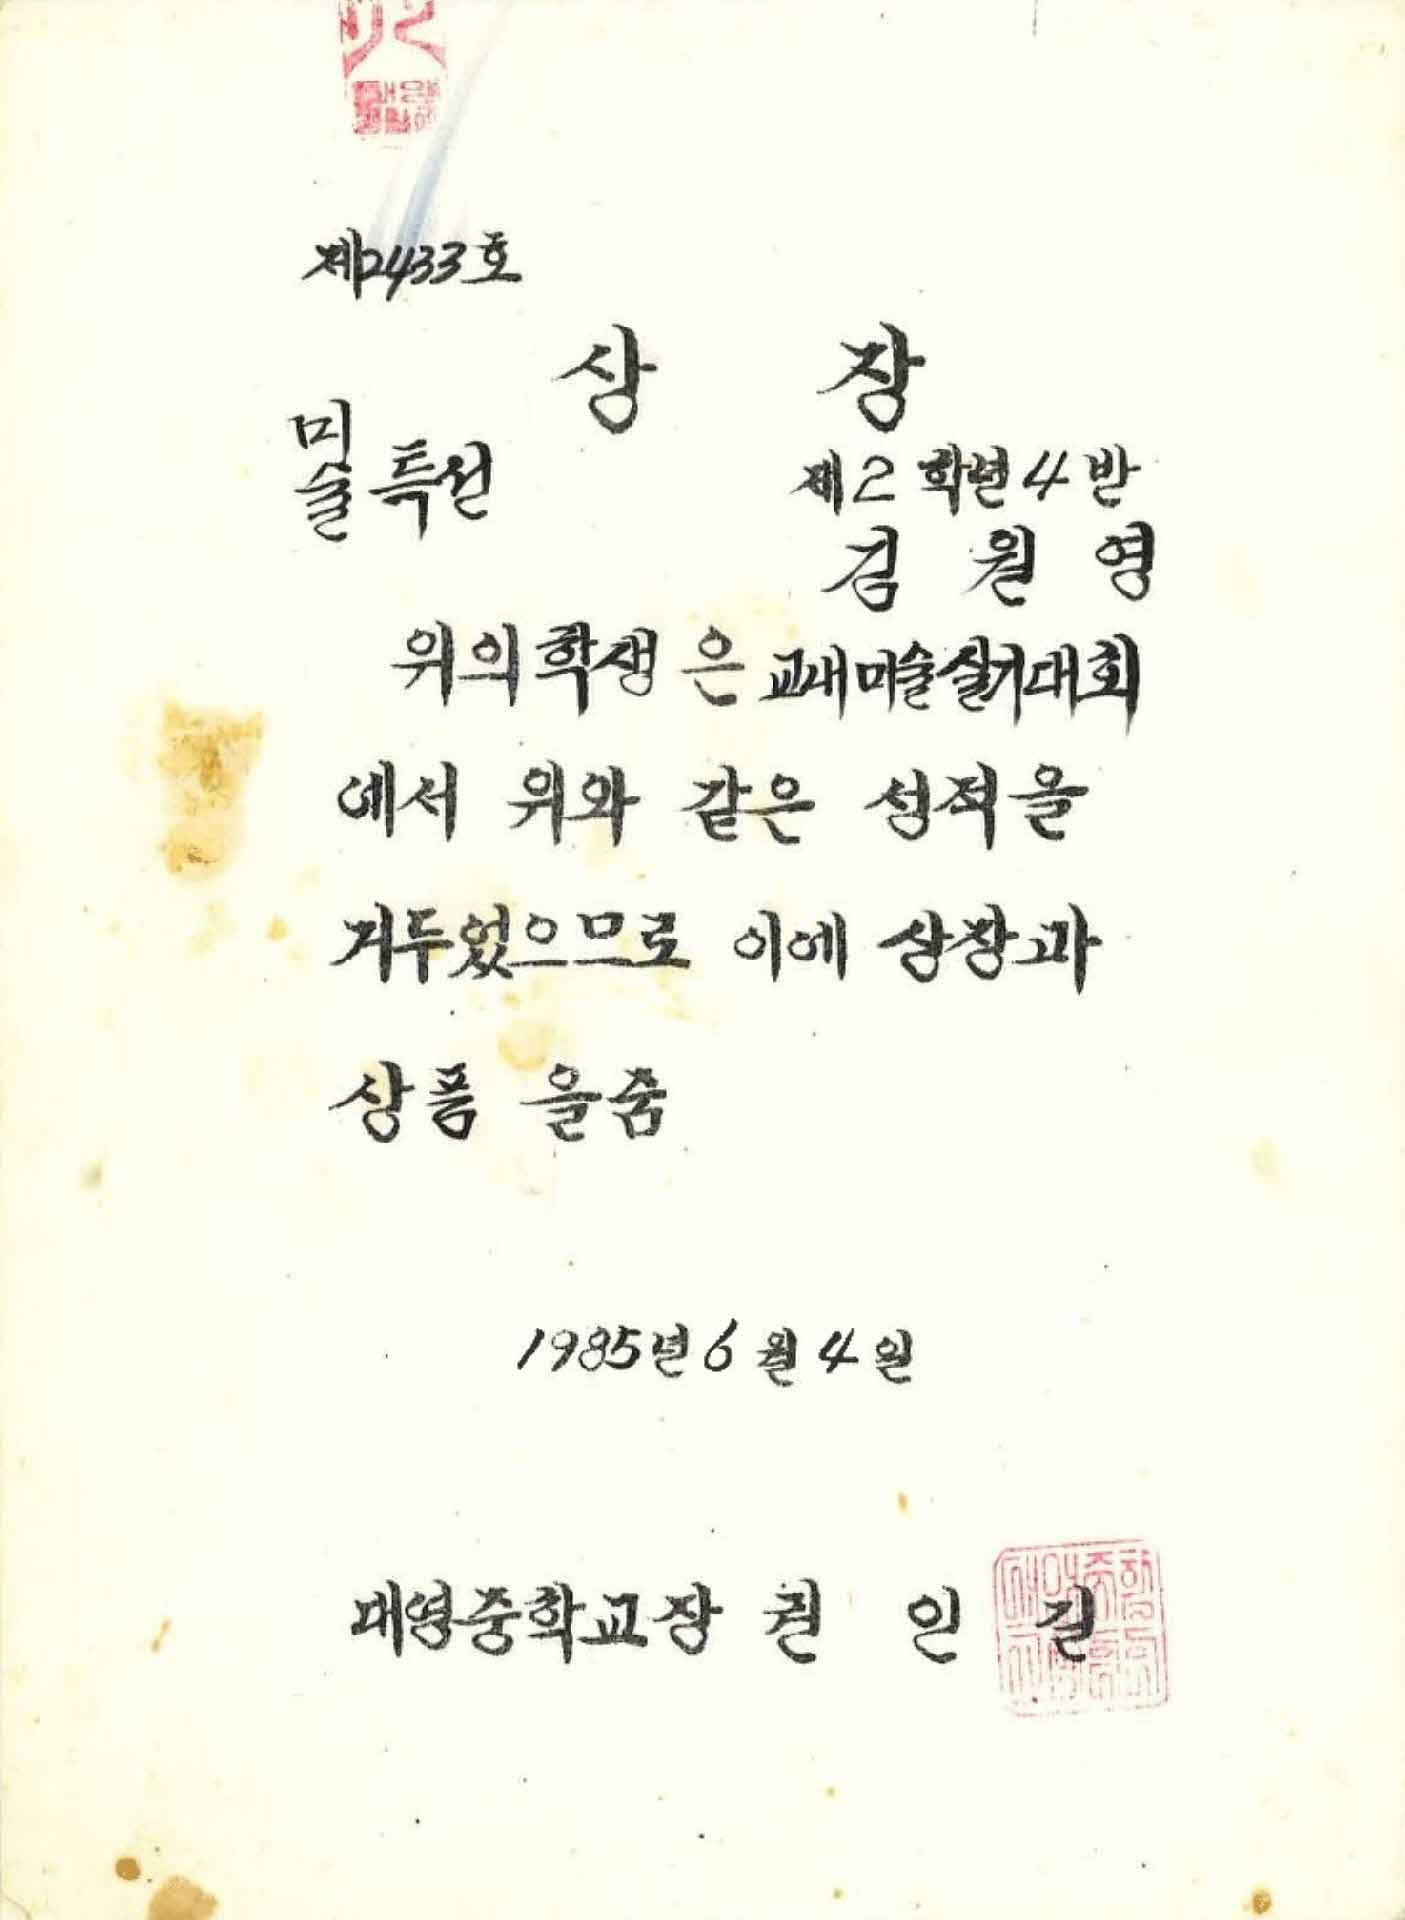 제2433호
상 장
미술 특선
제2학년4반
김 원 영
위의 학생은 교내미술실기대회
에서 위와 같은 성적을
거두었으므로 이에 상장과
상품을줌
1985년 6월 4일
대영중학교장 권 인 길